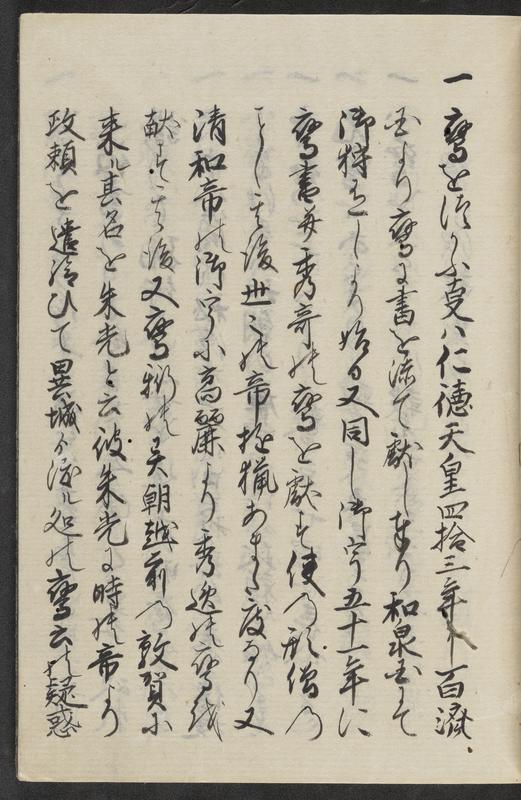 一 鷹をつかふ事ハ仁徳天皇四拾三年百濟
国より鷹に書を添て献しまり和泉国にて
御狩をしより始る又同し御宇五十一年に
鷹書并秀奇の鷹を献す使の形僧の
ことし其後世々の帝遊猟あまた度なり又
清和帝の御宇に高麗より秀逸の鷹を
献す其後又鷹術の吴朝越前の敦賀に
来ル其名を朱光と云彼朱光に時の帝より
政頼を遣給ひて異城より渡ル処の鷹云の疑惑